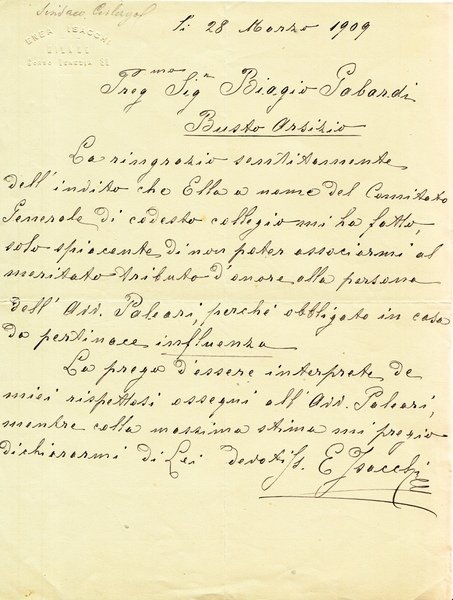 Sindaco
ENEA ISACCHI
MILANO
CORSO VENEZIA
Li 28 Marzo 1909
Preg.mo Sig.r Biagio Gabardi
Busto Arsizio
La ringrazio sentitamente
dell'invito che Ella a nome del Comitato
Generale di codesto collegio mi ha fatto
solo spiacente di non poter associarmi al
meritato tributo d'onore alla persona
dell'Avv. Paleari, perché obbligato in casa
da pertinace influenza
La prego d'essere interprete de
miei rispettosi ossequi all'Avv. Paleari,
mentre colla massima stima mi pregio
dichiararmi di Lei devotiss. E Isacchi